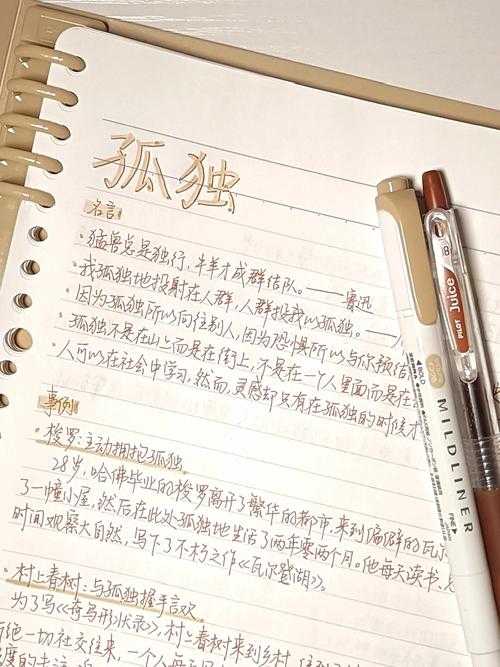 孤独
名言
·猛兽总是独行，牛羊才成群结队。——鲁迅
·我孤独地投射在人群，人群投我以孤独。——
·因为孤独所以向往别人，因为恐惧所以与你
·孤独不是在山上而是在街上，不是在一个人里面而是在
·人可以在社会中学习，然而，灵感却只有在孤独的时候才
事例
·梭罗：主动拥抱孤独
28岁，哈佛毕业的梭罗离开了繁华的都市，来到偏僻的瓦尔
了一幢小屋，然后在此处孤独地生活了两年零两个月。他每天读书、
时间观察大自然，写下了不朽之作《瓦尔登湖》。
·村上春树：与孤独握手言欢
为了写《奇鸟形状录》，村上春树来到乡村，住
绝一切社交往来，一个人每天
MILDLINER
PILOT Juice